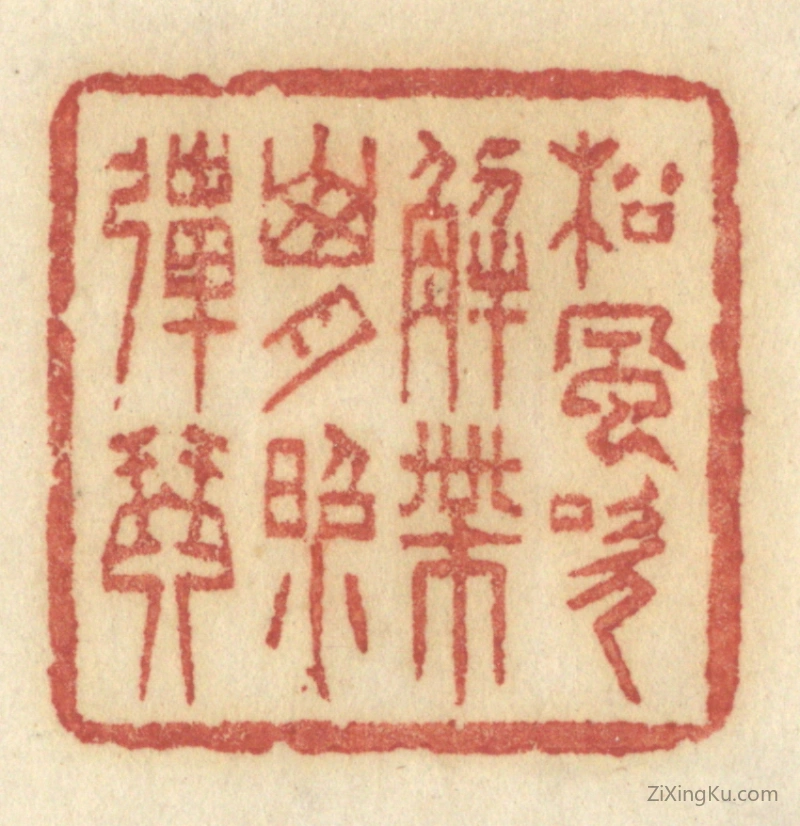 松風吹
解帶
山月照
彈琴
ZiXingKu.com